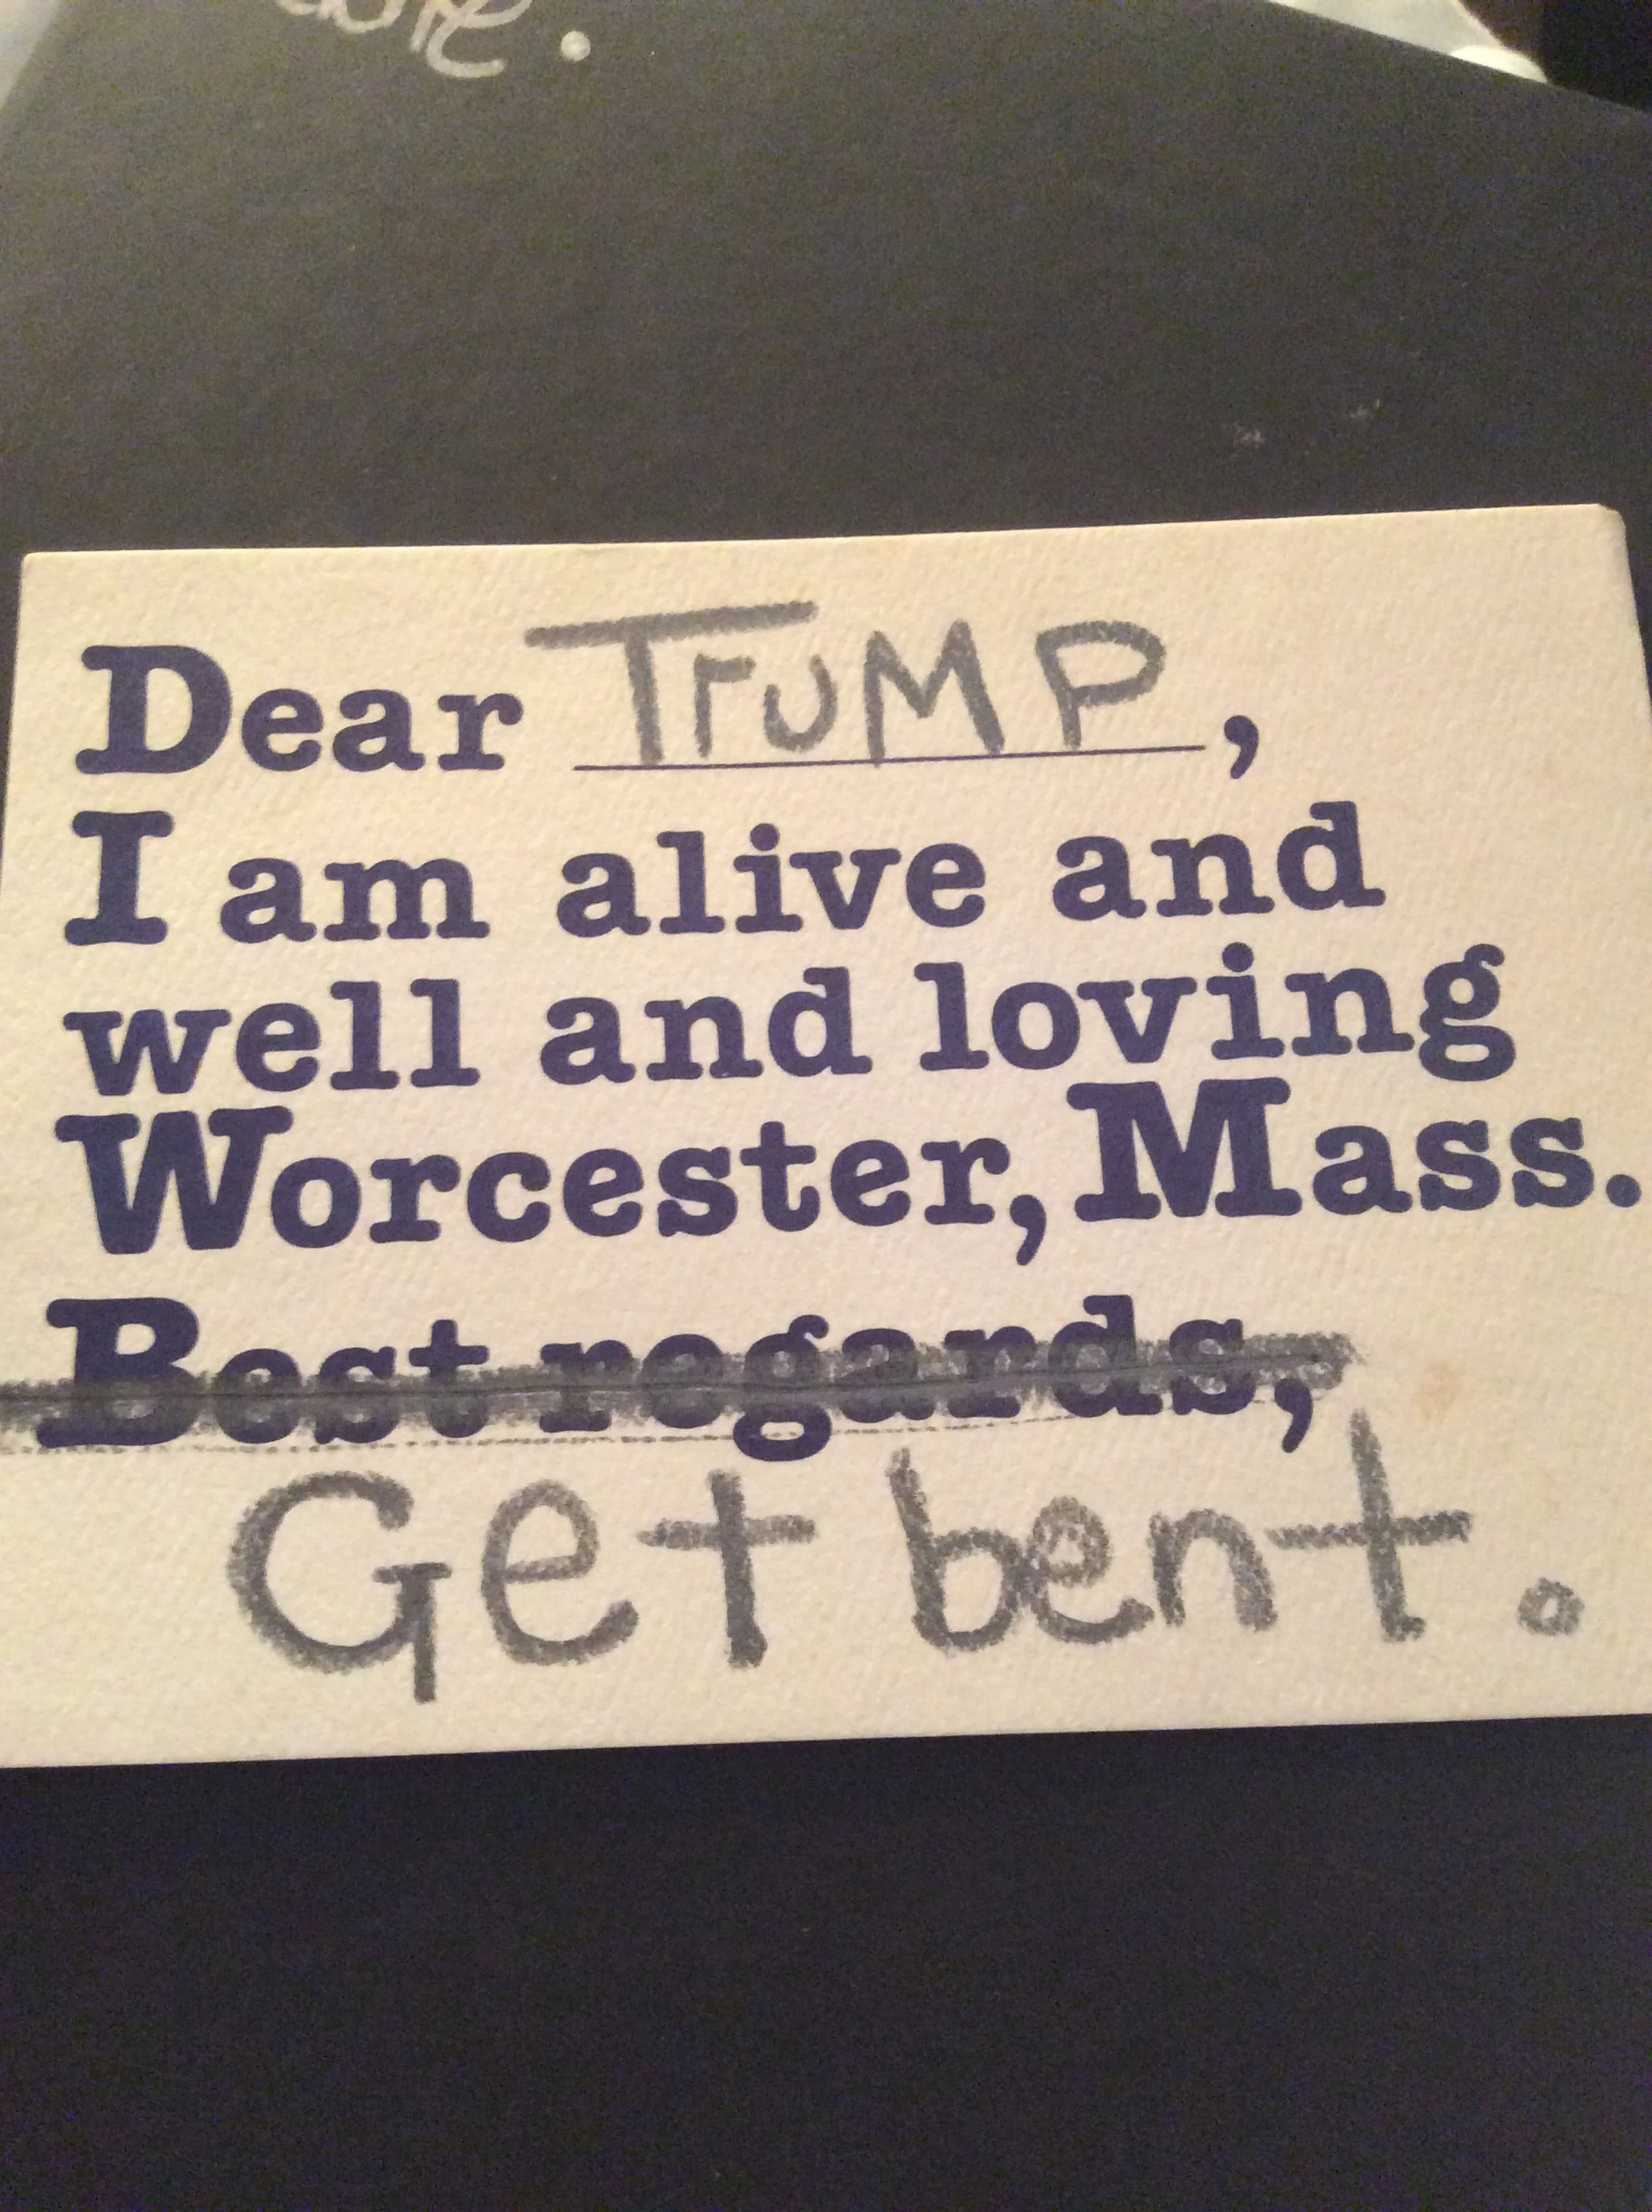 Dear TruMP,
I am alive and
well and loving
Worcester, Mass.
Best regards,
Get bent.